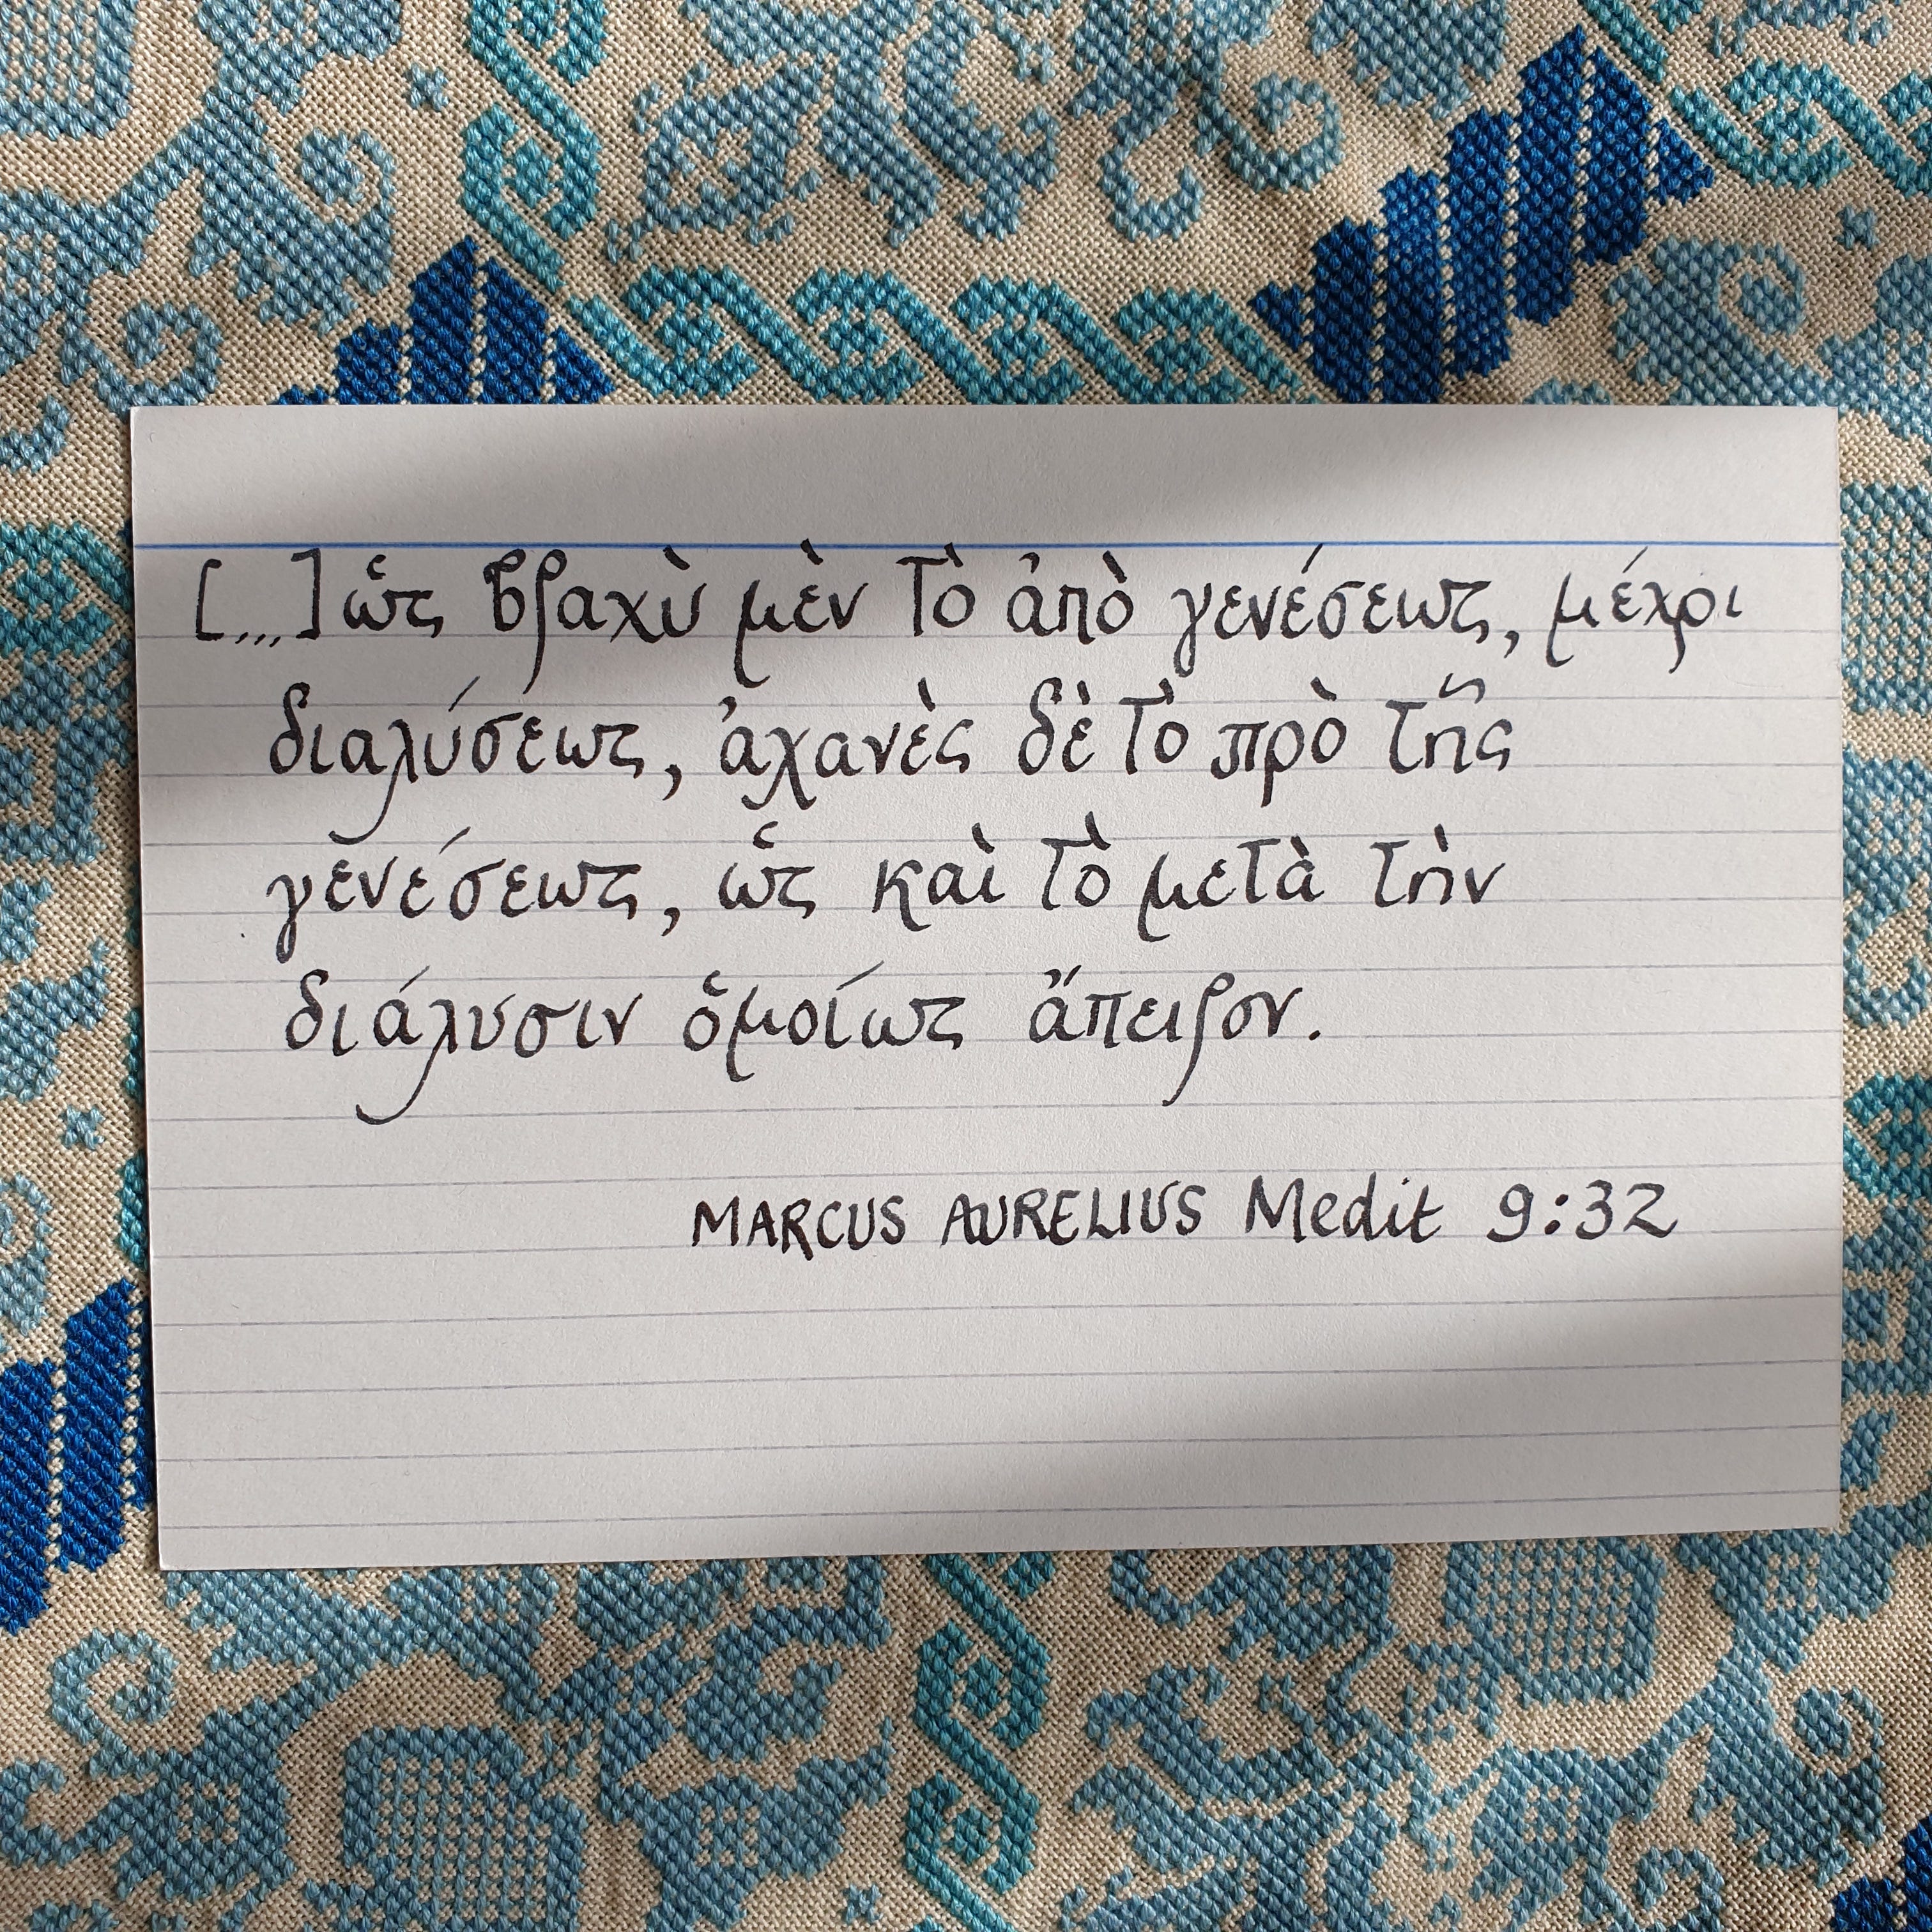 [...] ὡς βραχὺ μὲν τὸ ἀπὸ γενέσεως, μέχρι
διαλύσεως, ἀχανὲς δὲ τὸ πρὸ τῆς
γενέσεως, ὡς καὶ τὸ μετὰ τὴν
διάλυσιν ὁμοίως ἄπειρον.
MARCUS AURELIUS Medit 9:32